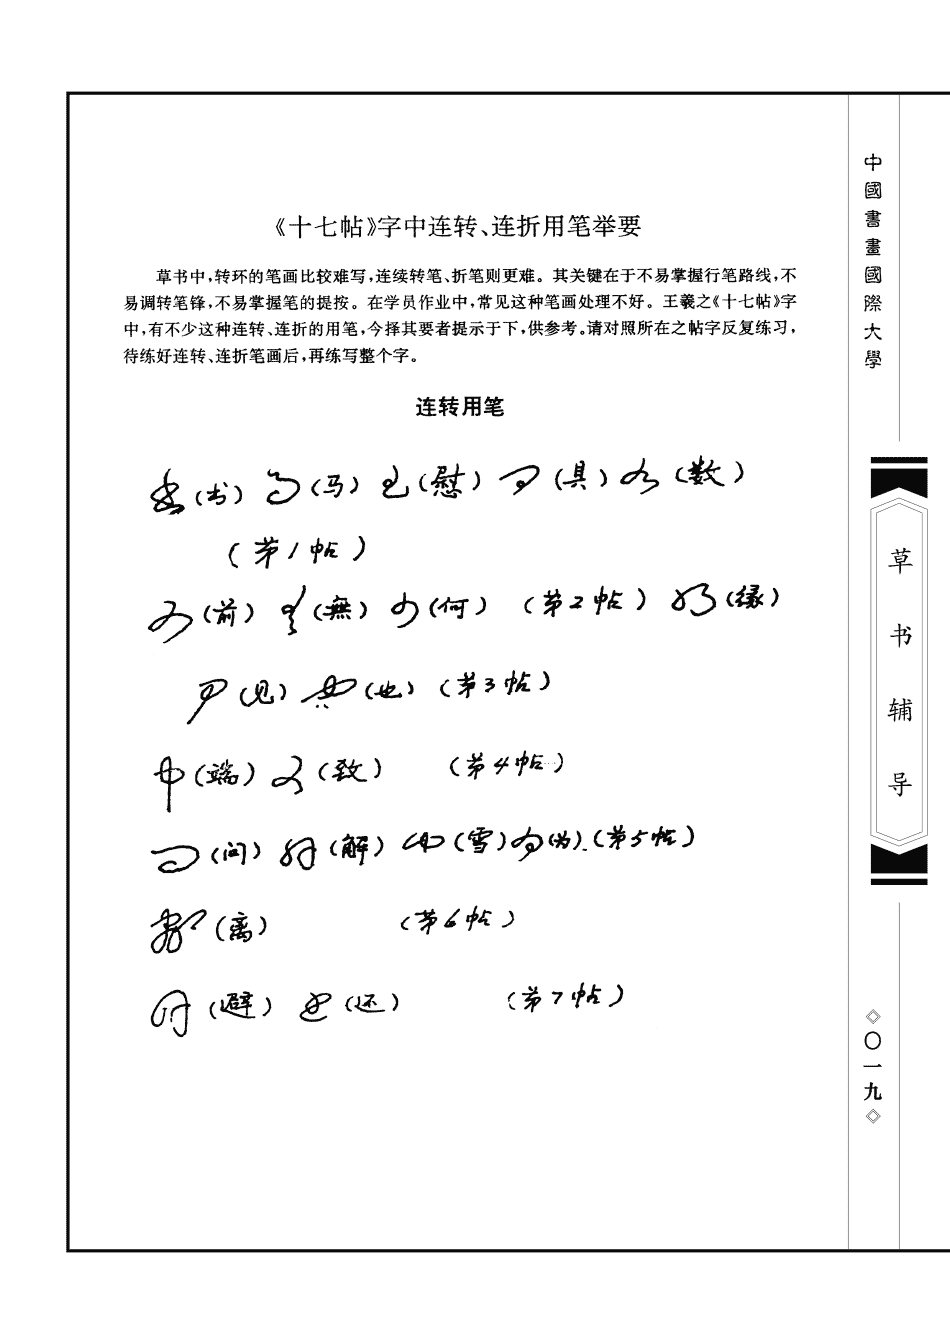 《十七帖》字中连转、连折用笔举要
草书中,转环的笔画比较难写,连续转笔、折笔则更难。其关键在于不易掌握行笔路线,不
易调转笔锋,不易掌握笔的提按。在学员作业中,常见这种笔画处理不好。王羲之《十七帖》字
中,有不少这种连转、连折的用笔,今择其要者提示于下,供参考。请对照所在之帖字反复练习,
待练好连转、连折笔画后,再练写整个字。
连转用笔
(书) (马) (慰) (具) (数)
(第1帖)
(前) (無) (何) (第2帖) (缘)
(见) (也) (第3帖)
(端) (致) (第4帖)
(问) (解) (雪) (为) (第5帖)
(离) (第6帖)
(避) (还) (第7帖)
中國書畫國際大學
草书辅导
◇〇一九◇